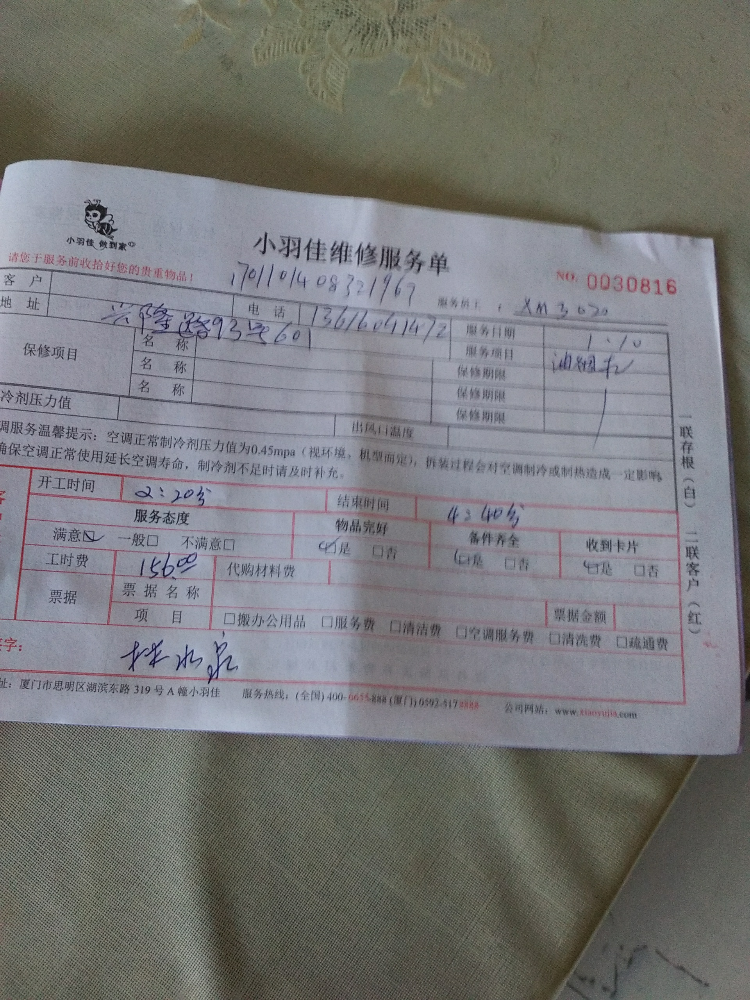 小羽佳 做到家
小羽佳维修服务单
NO. 0030816
请您于服务前收拾好您的贵重物品！
1701101408321969
服务员工：XM3020
客户 电话 13616041472 服务日期 1.10
地址 兴隆路93号601 服务项目 油烟机
保修项目 名称 保修期限
名称 保修期限
名称 保修期限
冷剂压力值 出风口温度
调服务温馨提示：空调正常制冷剂压力值为0.45mpa（视环境、机型而定），拆装过程会对空调制冷或制热造成一定影响，
确保空调正常使用延长空调寿命，制冷剂不足时请及时补充。
开工时间 2:20分 结束时间 4:40分
服务态度 物品完好 备件齐全 收到卡片
满意☑ 一般□ 不满意□ ☑是 □否 ☑是 □否 ☑是 □否
工时费 156.00 代购材料费
票据 票据名称 票据金额
项目 □搬办公用品 □服务费 □清洁费 □空调服务费 □清洗费 □疏通费
签字： 林水泉
址：厦门市思明区湖滨东路 319 号 A 幢小羽佳 服务热线：(全国) 400-6655-888 (厦门) 0592-5178888 公司网站：www.xiaoyujia.com
一联存根（白） 二联客户（红）